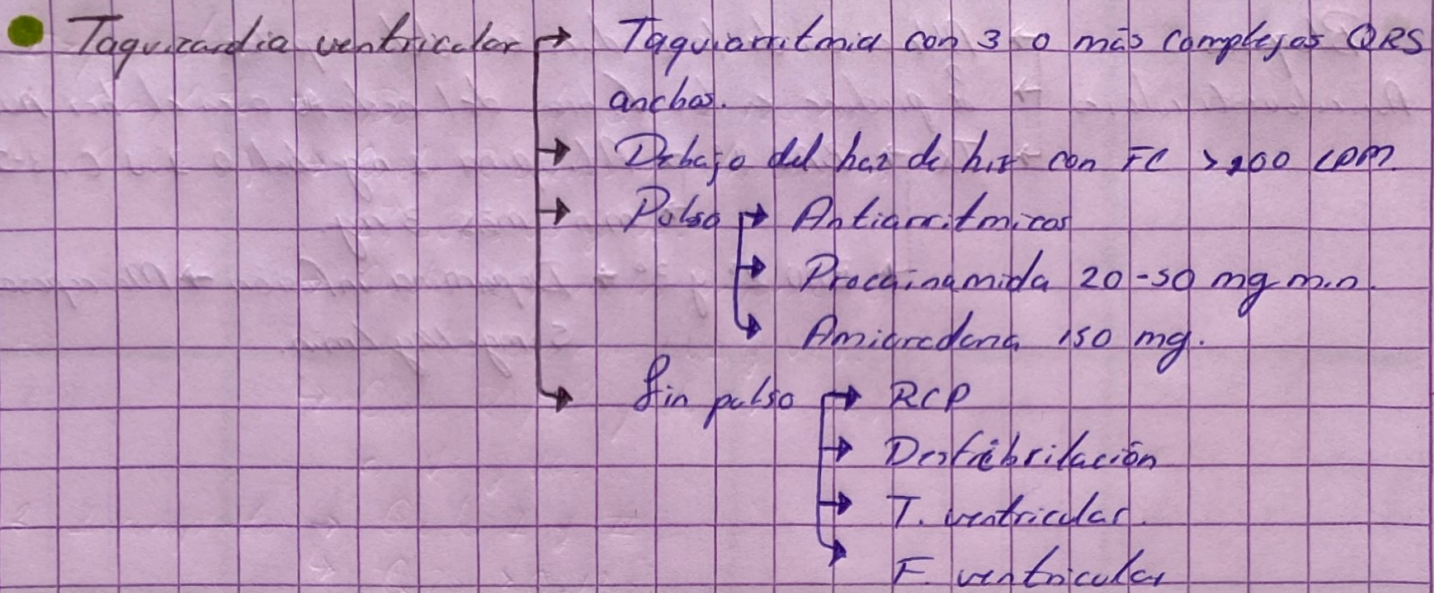 Taquicardia ventricular → Taquiarritmia con 3 o más complejos QRS
anchos.
→ Debajo del haz de his con FC >100 LPM.
→ Pulso → Antiarritmicos
→ Procainamida 20-50 mg min.
→ Amioredona 150 mg.
→ Sin pulso → RCP
→ Desfibrilación
→ T. ventricular.
→ F. ventricular